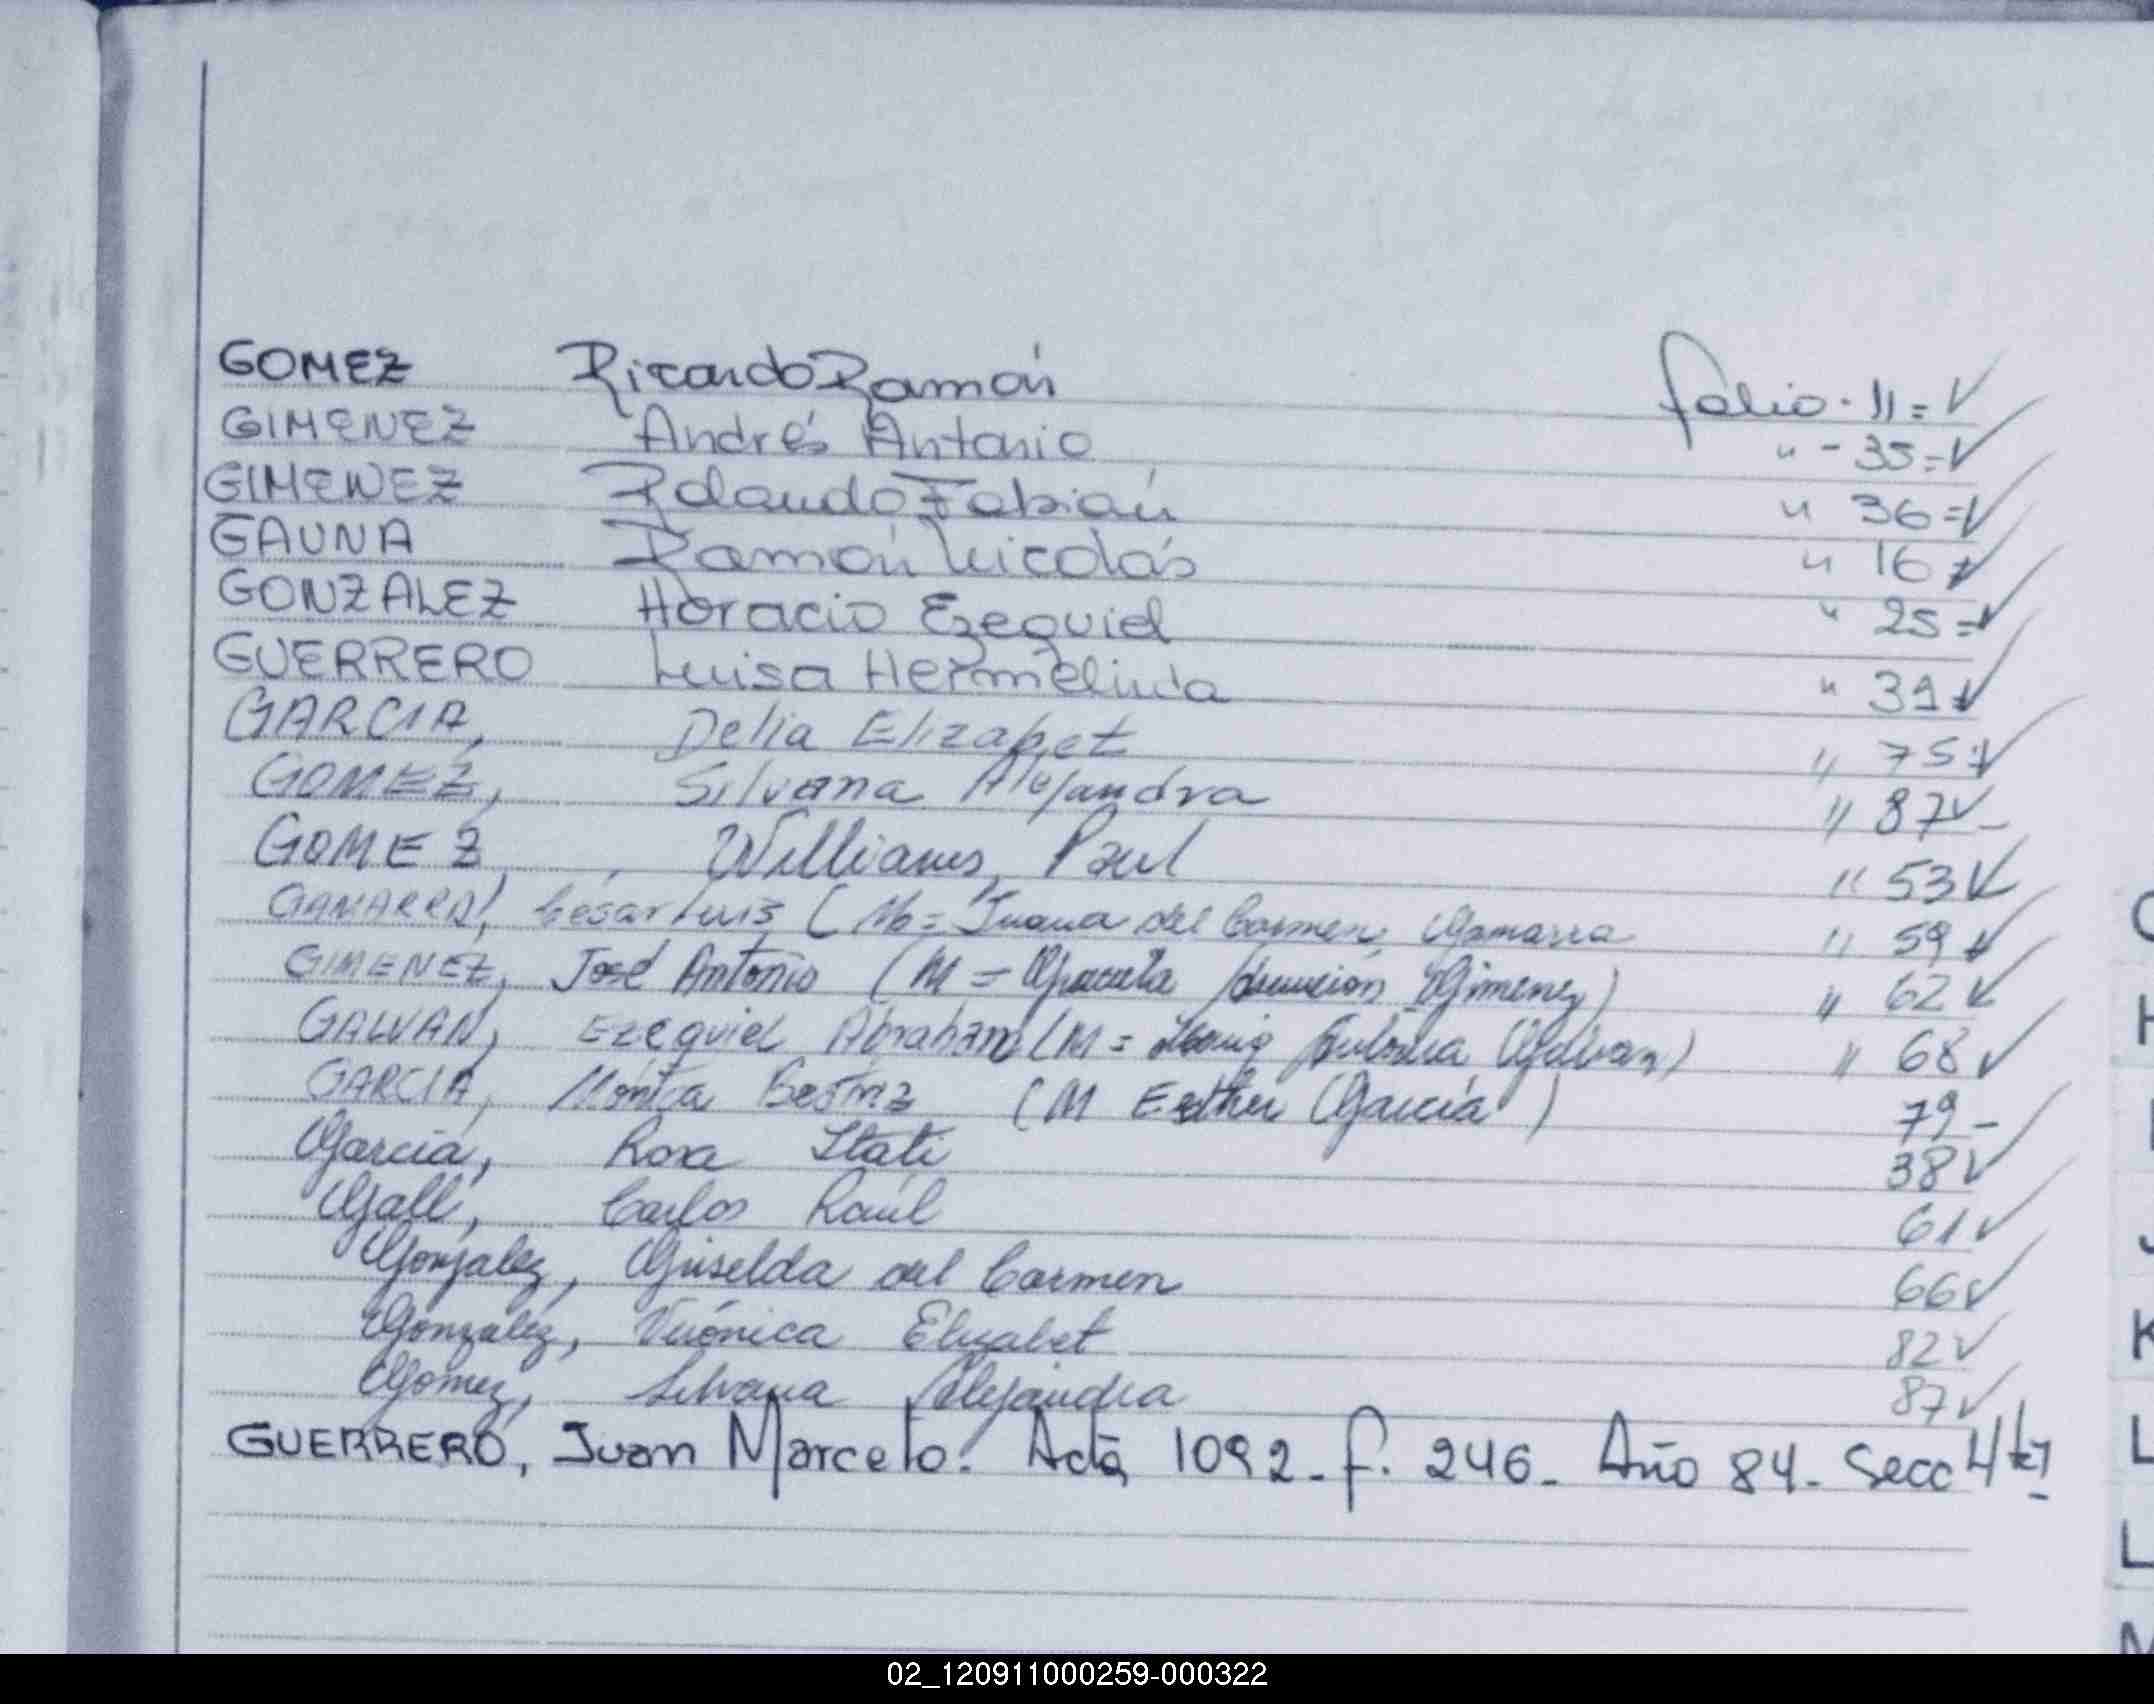 GOMEZ Ricardo Ramón folio - 11 = ✓
GIMENEZ Andrés Antonio " - 35 = ✓
GIMENEZ Rolando Fabián " 36 = ✓
GAUNA Ramón Nicolás " 16 ✓
GONZALEZ Horacio Ezequiel " 25 = ✓
GUERRERO Luisa Hermelinda " 39 ✓
GARCIA, Delia Elizabet " 75 = ✓
GOMEZ, Silvana Alejandra " 87 ✓
GOMEZ, Willians Paul " 53 ✓
GAMARRA, César Luis (M = Juana del Carmen Gamarra " 59 ✓
GIMENEZ, José Antonio (M = Asunción Gimenez) " 62 ✓
GALVAN, Ezequiel Abraham (M = Antonia Galvan) " 68 ✓
GARCIA, Mónica Beatriz (M Esther Garcia) 79 -
Garcia, Rosa Itati 38 ✓
Galli, Carlos Raúl 61 ✓
Gonzalez, Griselda del Carmen 66 ✓
Gonzalez, Verónica Elizabet 82 ✓
Gomez, Silvana Alejandra 87 ✓
GUERRERO, Juan Marcelo. Acta 1092 - f. 246 - Año 84 - Secc 4ta
H
J
K
L
L
M
02_120911000259-000322